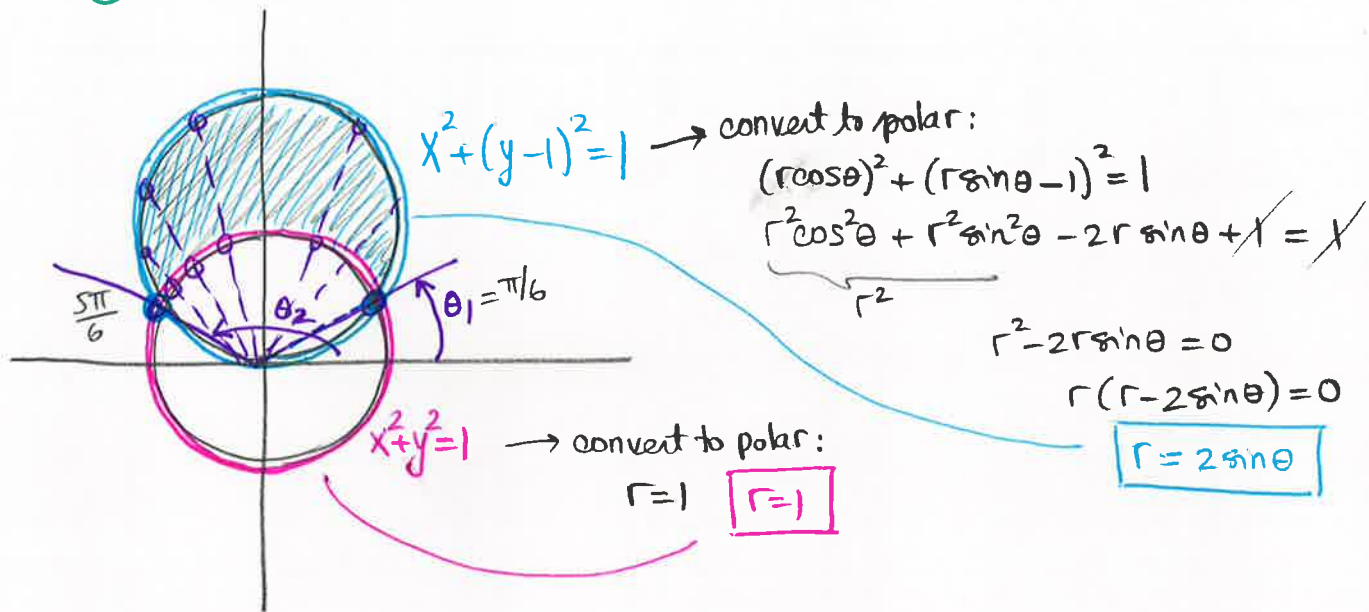 x²+(y-1)²=1 → convert to polar:
(rcosθ)²+(rsinθ-1)²=1
r²cos²θ + r²sin²θ - 2r sinθ + 1 = 1
r²
5π/6
θ₂
θ₁ = π/6
r²-2rsinθ = 0
r(r-2sinθ)=0
r = 2sinθ
x²+y²=1 → convert to polar:
r=1 r=1